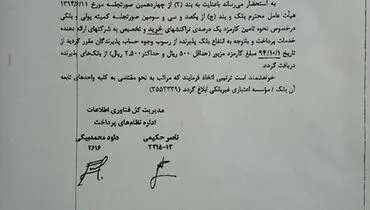 به استحضار می‌رساند باعنایت به بند (۲) از چهاردهمین صورتجلسه مورخ ۱۳۹۴/۶/۱۱
هیأت عامل محترم بانک و بند (۲) از یکصد و سی و سومین صورتجلسه کمیته پولی و بانکی
درخصوص نحوه تامین کارمزد یک درصدی تراکنشهای خرید و تخصیص به شرکتهای ارائه دهنده
خدمات پرداخت و باتوجه به انتفاع بانک پذیرنده از رسوب وجوه حساب پذیرندگان مقرر گردید از
تاریخ ۹۴/۱۰/۱ مبلغ کارمزد مزبور (حداقل ۵۰۰ ریال و حداکثر ۲,۵۰۰ ریال) از بانک‌های پذیرنده
دریافت گردد.
خواهشمند است ترتیبی اتخاذ فرمایند که مراتب به نحو مقتضی به کلیه واحدهای تابعه
آن بانک / مؤسسه اعتباری غیربانکی ابلاغ گردد. (۲۵۵۲۳۳۹)
مدیریت کل فناوری اطلاعات
اداره نظام‌های پرداخت
ناصر حکیمی داود محمدبیگی
۲۲۱۵-۱۳ ۲۶۱۶